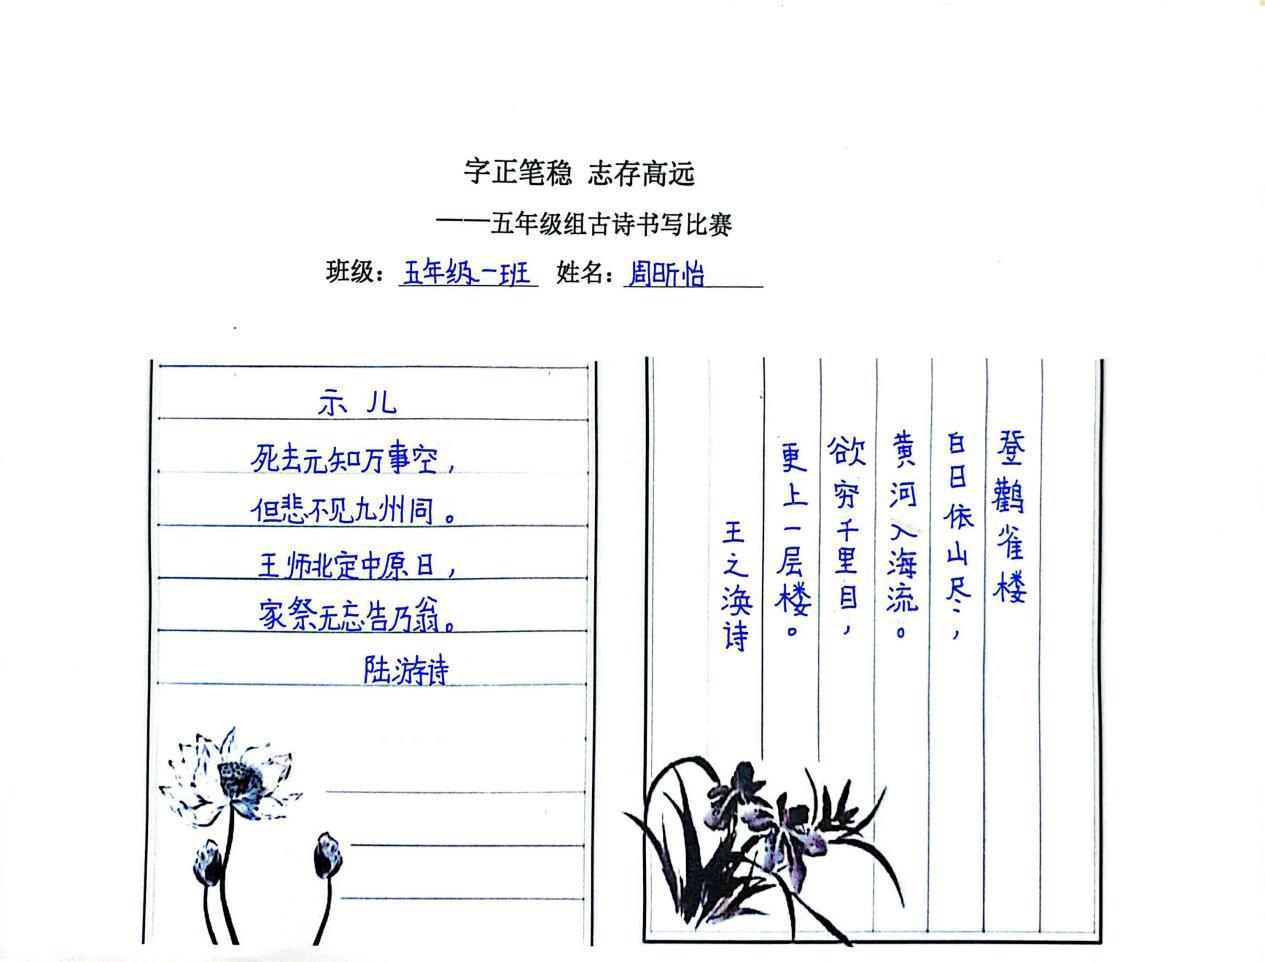 字正笔稳 志存高远
——五年级组古诗书写比赛
班级：五年级一班 姓名：周昕怡
示儿
死去元知万事空，
但悲不见九州同。
王师北定中原日，
家祭无忘告乃翁。
陆游诗
登鹳雀楼
白日依山尽，
黄河入海流。
欲穷千里目，
更上一层楼。
王之涣诗